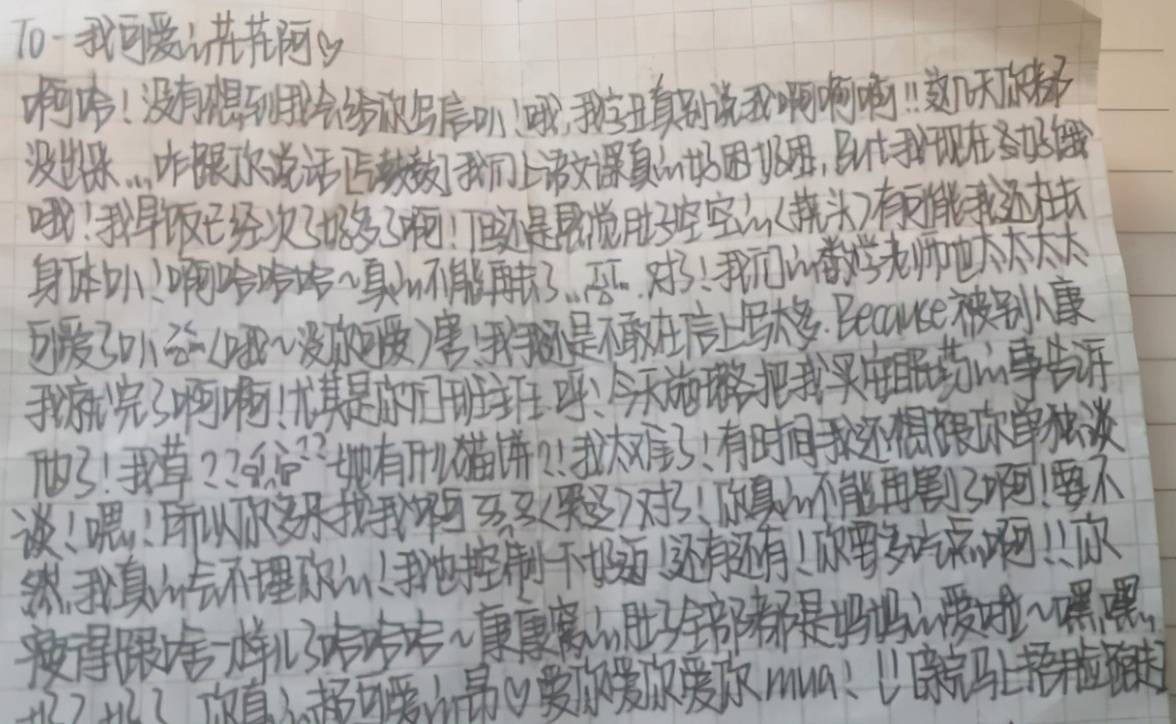 To-我可爱的花花阿♡
啊哈！没有想到我会给你写信叭！哦，我字丑真别说我啊啊啊!!这几天你都
没出来...咋跟你说话[丐]我们上语文课真的好困好困，But我现在好饿
哦！我早饭已经次了好多了啊！但还是感觉肚子空空的(挠头)有可能我还在长
身体叭！啊哈哈哈哈~真的不能再长了...对了！我们的数学老师也太太太太
可爱了叭(哦~没你可爱)害！我还是不敢在信上写太多.Because被别人康
我就完了啊啊！尤其是你们班主任呼！今天她把我买安眠药的事告诉
他了！我草??她有什么猫饼?!我太难了！有时间我还想跟你单独谈
谈！嘿！所以你多来找我啊(哭)对了！你真的不能再割了啊！要不
然，我真的会不理你的！我也控制一下好通！还有还有！你要多吃点啊!!你
瘦得跟啥一样儿了哈哈哈哈~康康窝的肚子全部都是妈妈的爱啦~嘿，嘿，
好了好了 你真的超可爱的昂♡爱你爱你爱你mua！